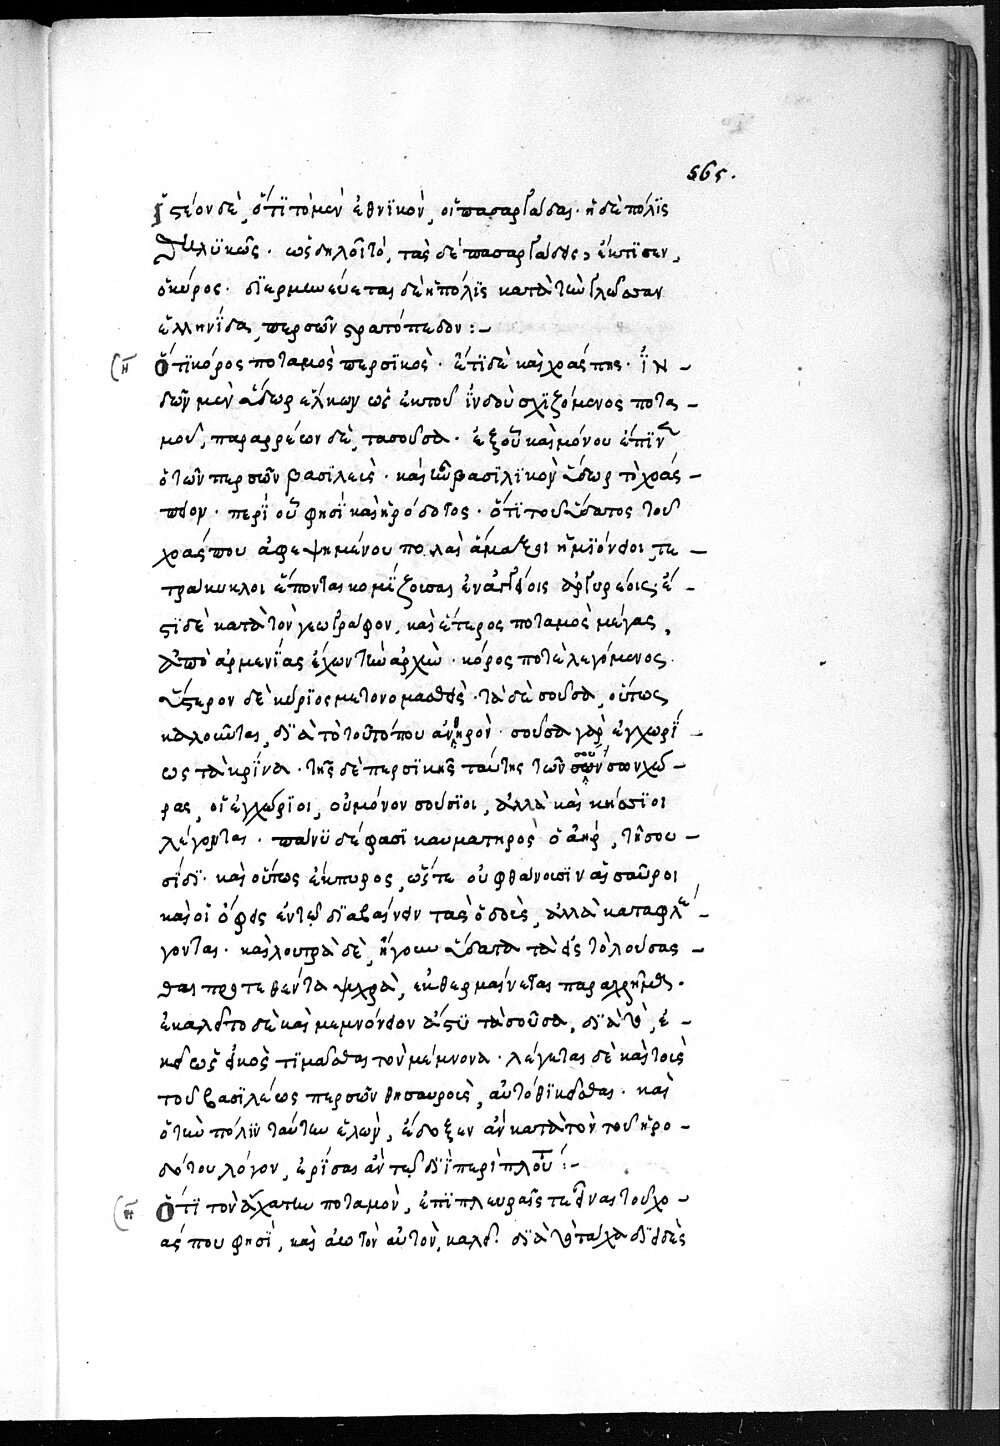 565.
ἰστέον δὲ, ὅτι τὸ μὲν ἐθνικὸν, οἱ πασαργάδαι· ἡ δὲ πόλις
θηλυκῶς· ὡς δηλοῖ τὸ, τὰς δὲ πασαργάδας, ἔκτισεν,
ὁ κύρος· διερμηνεύεται δὲ ἡ πόλις κατὰ τὴν γλῶσσαν
ἑλληνίδα, περσῶν στρατόπεδον :–
ὅτι κόρος ποταμὸς περσικὸς· ἔτι δὲ καὶ χοάσπης· ἰν–
δῶν μὲν ὕδωρ ἕλκων ὡς ἔκ που ἰνδοῦ σχιζόμενος ποτα–
μοῦ, παραρρέων δὲ, τὰ σοῦσα· ἐξ οὗ καὶ μόνου ἔπινον
ὁ τῶν περσῶν βασιλεὺς· καὶ ἦν βασιλικὸν ὕδωρ τὸ χοάσ–
πειον· περὶ οὗ φησὶ καὶ ἡρόδοτος· ὅτι τοῦ ὕδατος τοῦ
χοάσπου ἀφεψημένου πολλαὶ ἅμαξαι ἡμιόνειοι τε–
τράκυκλοι ἕπονται κομίζουσαι ἐν ἀγγείοις ἀργυρέοις· ἔ–
στι δὲ κατὰ τὸν γεωγράφον, καὶ ἕτερος ποταμὸς μέγας,
ἀπὸ ἀρμενίας ἔχων τὴν ἀρχὴν· κόρος ποτὲ λεγόμενος.
ὕστερον δὲ κύριος μετονομασθεὶς· τὰ δὲ σοῦσα, οὕτως
καλοῦνται, διὰ τὸ τοῦ τόπου ἀνθηρὸν· σοῦσα γὰρ ἐγχωρί–
ως τὰ κρίνα· τῆς δὲ περσικῆς ταύτης τῶν σουσων χώ–
ρας, οἱ ἐγχώριοι, οὐ μόνον σούσιοι, ἀλλὰ καὶ κίσσιοι
λέγονται· πάνυ δέ φασι καυματηρὸς ὁ ἀὴρ, τῇ σου–
σίδι· καὶ οὕτως ἔκπυρος, ὥστε οὐ φθάνουσιν αἱ σαῦροι
καὶ οἱ ὄφεις ἐντὸς διαβαίνειν τὰς ὁδοὺς, ἀλλὰ καταφλέ–
γονται· καὶ λουτρὰ δὲ, ἤγουν ὕδατα τὰ εἰς τὸ λούσασ–
θαι προτεθέντα ψυχρὰ, ἐκθερμαίνεται παραχρῆμα.
ἐκαλεῖτο δὲ καὶ μεμνόνειον ἄστυ τὰ σοῦσα, διὰ τὸ, ἐ–
κεῖ ὡς εἰκὸς τιμᾶσθαι τὸν μέμνονα· λέγεται δὲ καὶ τοὺς
τοῦ βασιλέως περσῶν θησαυροὺς, αὐτόθι κεῖσθαι· καὶ
ὁ τὴν πόλιν ταύτην ἑλὼν, ἔδοξεν ἂν κατὰ τὸν τοῦ ἡρο–
δότου λόγον, ἐρίσαι ἂν τῷ διὶ περὶ πλούτου :–
ὅτι τὸν ἀχάτην ποταμὸν, ἐπὶ πλευραῖς τ εἶναι τοῦ χο–
άσπου φησὶ, καὶ ἀπ τὸν αὐτὸν καλεῖ. διὰ τὸ τάχα διειδὲς